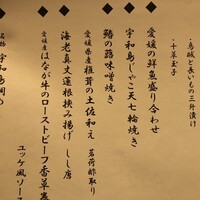 ・鳥賊と長いもの三升漬け
・十菜玉子
◆愛媛の鮮魚盛り合わせ
◆宇和島じゃこ天七輪焼き
◆鰆の蕗味噌焼き
◆愛媛県産椎茸の土佐和え 茗荷酢取り
◆海老真丈蓮根挟み揚げ しし唐
◆愛媛産はなが牛のローストビーフ香草
ユッケ風ソース
名物 宇和島鯛め